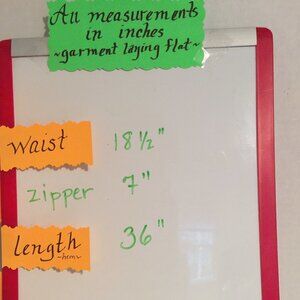 All measurements
in inches
~garment laying flat~
Waist 18 1/2"
zipper 7"
length 36"
~hem~